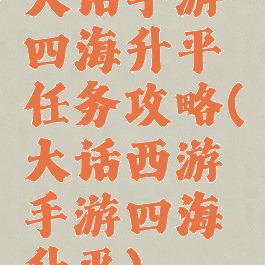 大话手游
四海升平
任务攻略(
大话西游
手游四海
升平)